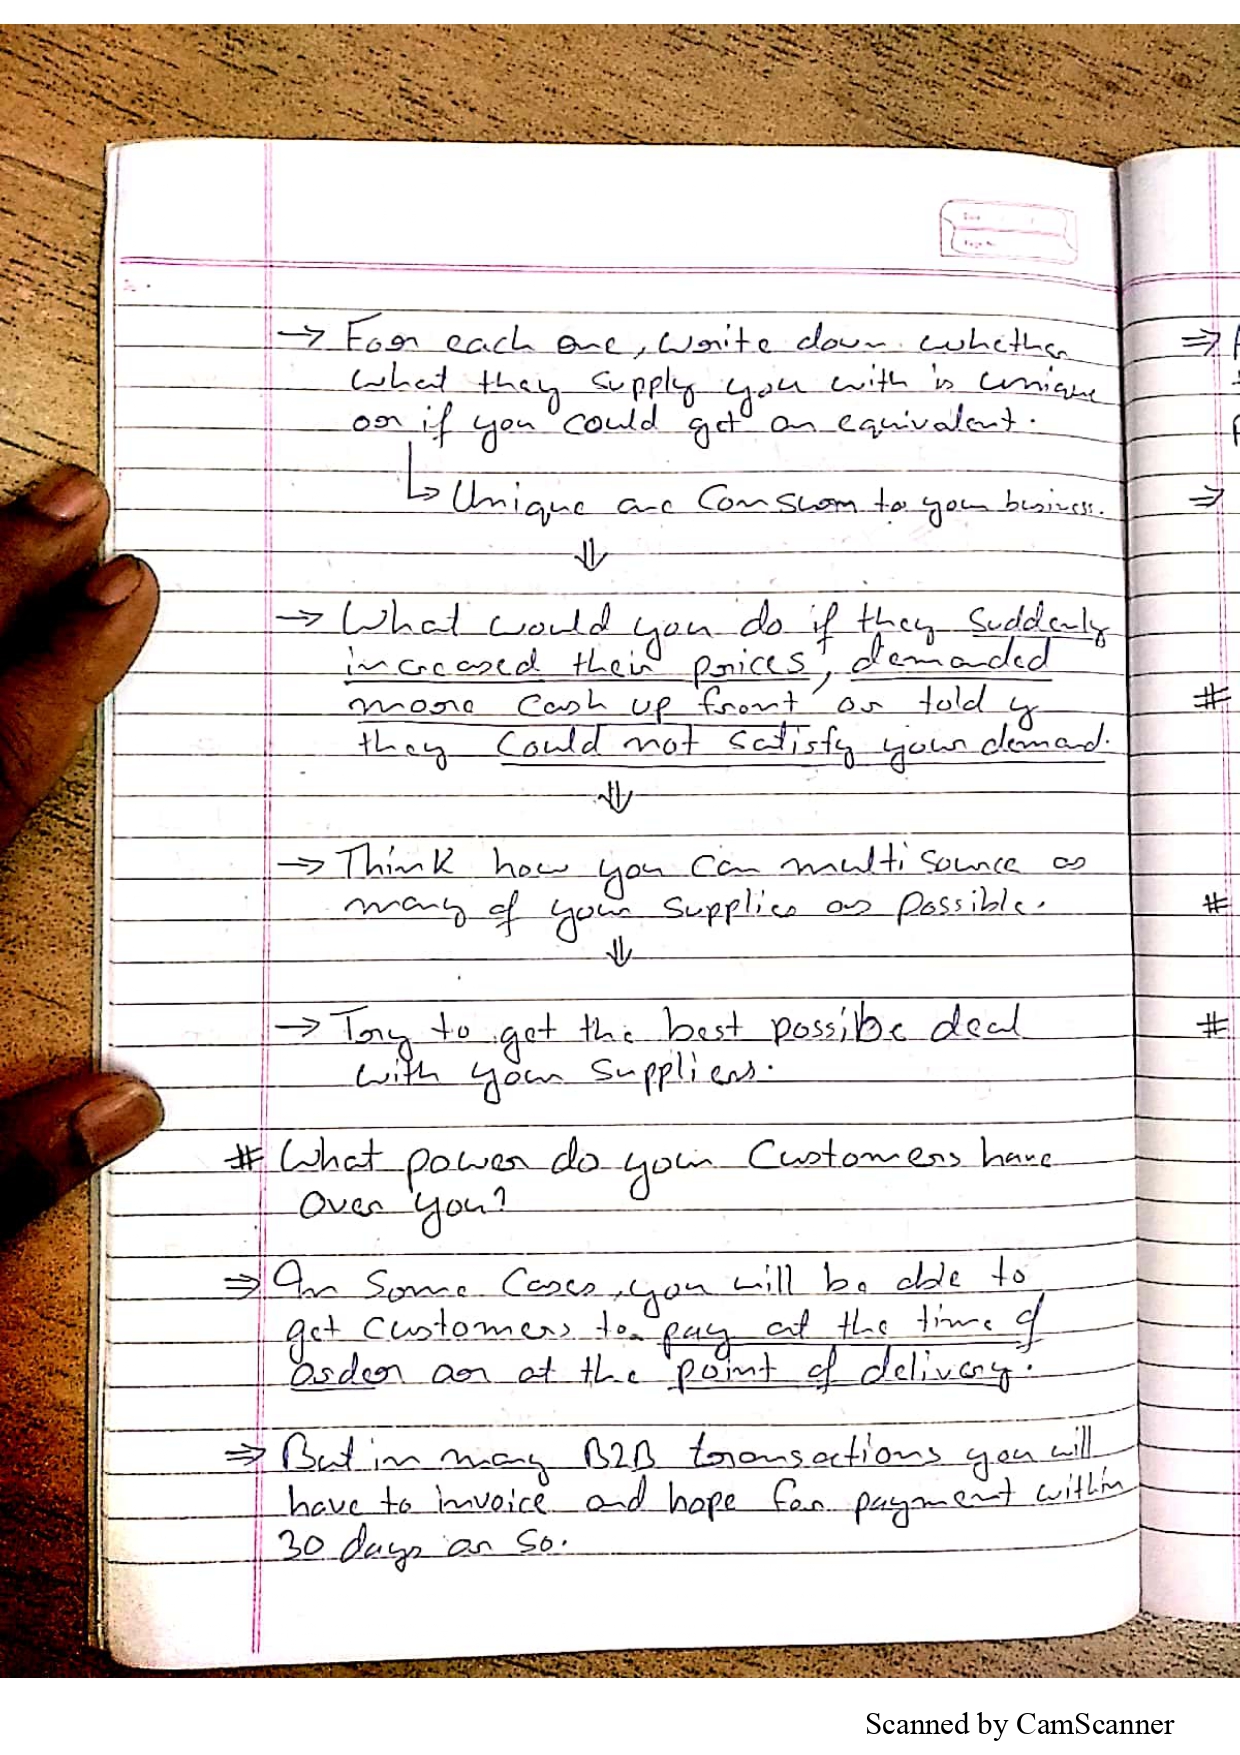 → For each one, write down whether
what they supply you with is unique
or if you could get an equivalent.
↳ Unique are to your business.
⇓
→ What would you do if they suddenly
increased their prices, demanded
more cash up front or told y
they could not satisfy your demand.
⇓
→ Think how you can multi source as
many of your supplies as possible.
⇓
→ Try to get the best possibe deal
with your suppliers.
# What power do your customers have
over you?
⇒ In some cases, you will be able to
get customers to pay at the time of
order or at the point of delivery.
⇒ But in many B2B transactions you will
have to invoice and hope for payment within
30 days or so.
⇒
⇒
#
#
#
Scanned by CamScanner